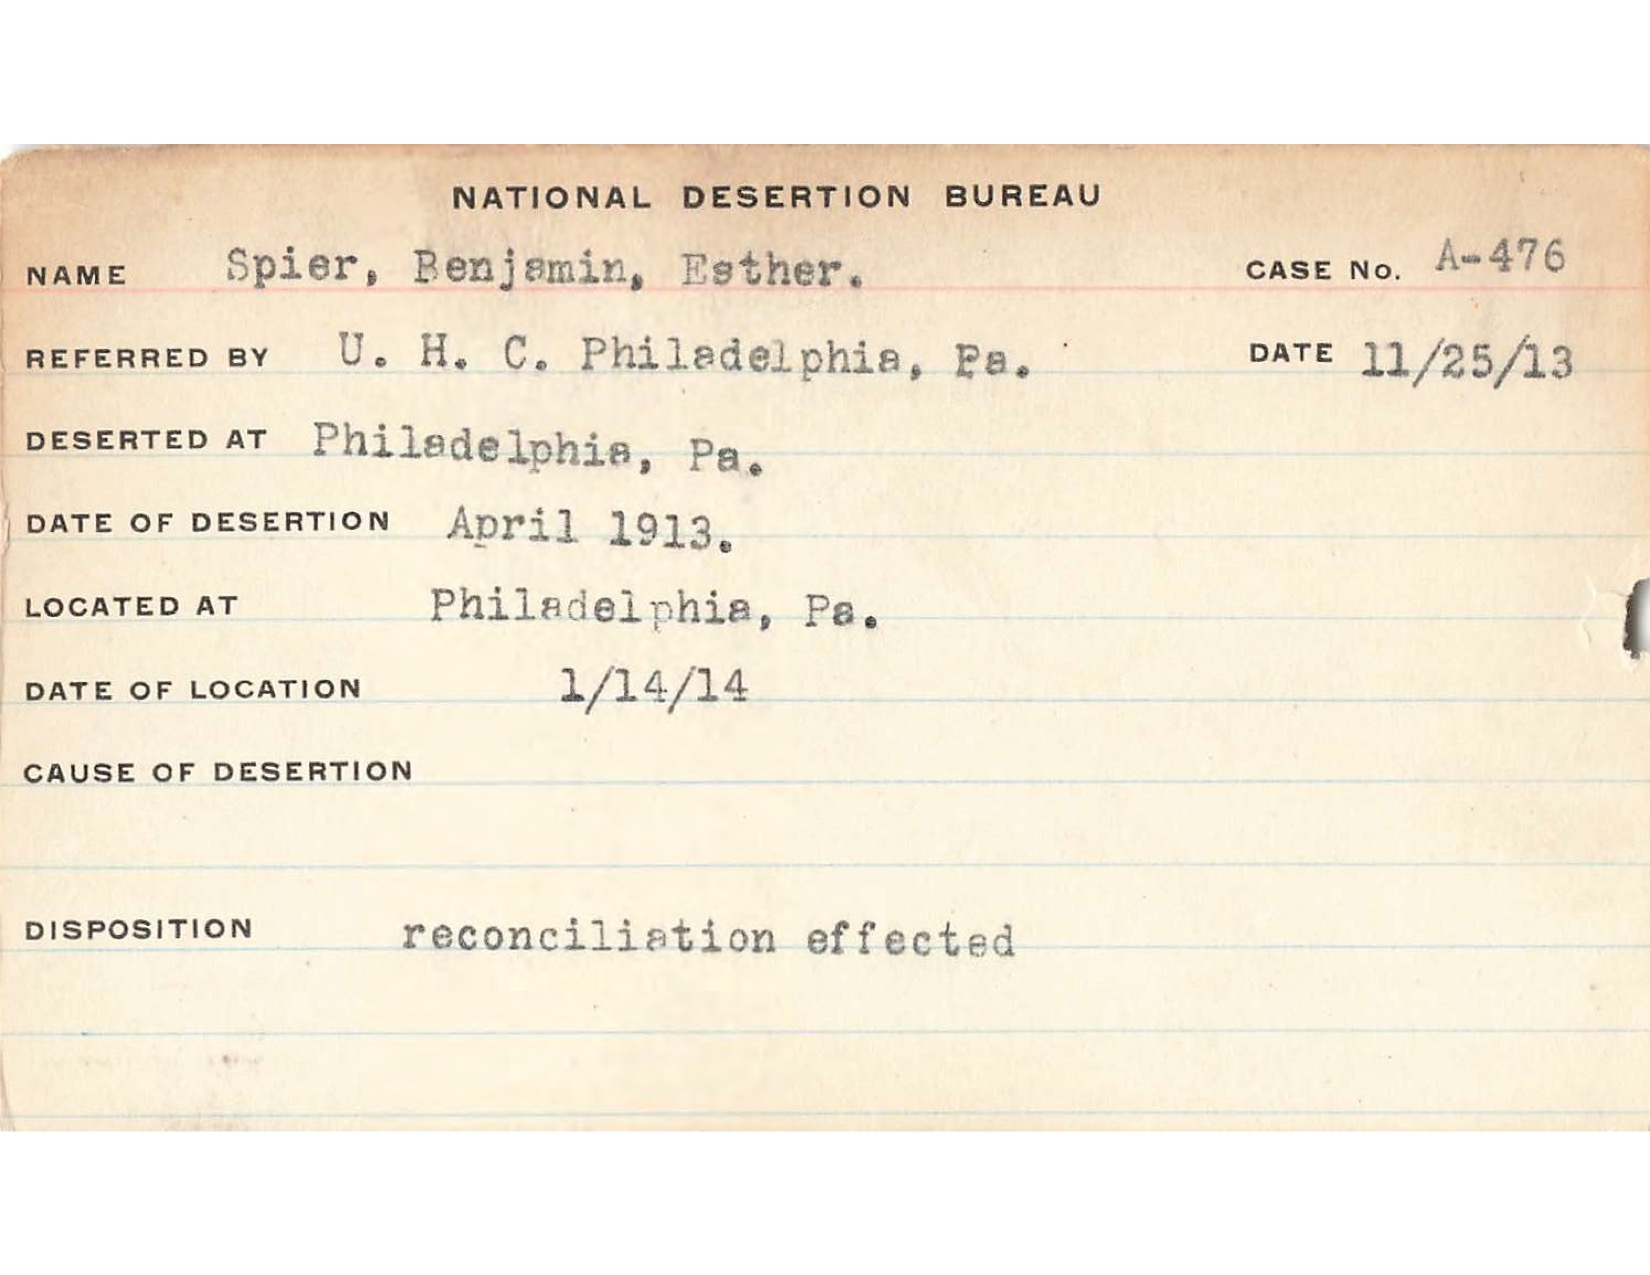 NATIONAL DESERTION BUREAU
NAME Spier, Benjamin, Esther. CASE No. A-476
REFERRED BY U. H. C. Philadelphia, Pa. DATE 11/25/13
DESERTED AT Philadelphia, Pa.
DATE OF DESERTION April 1913.
LOCATED AT Philadelphia, Pa.
DATE OF LOCATION 1/14/14
CAUSE OF DESERTION
DISPOSITION reconciliation effected